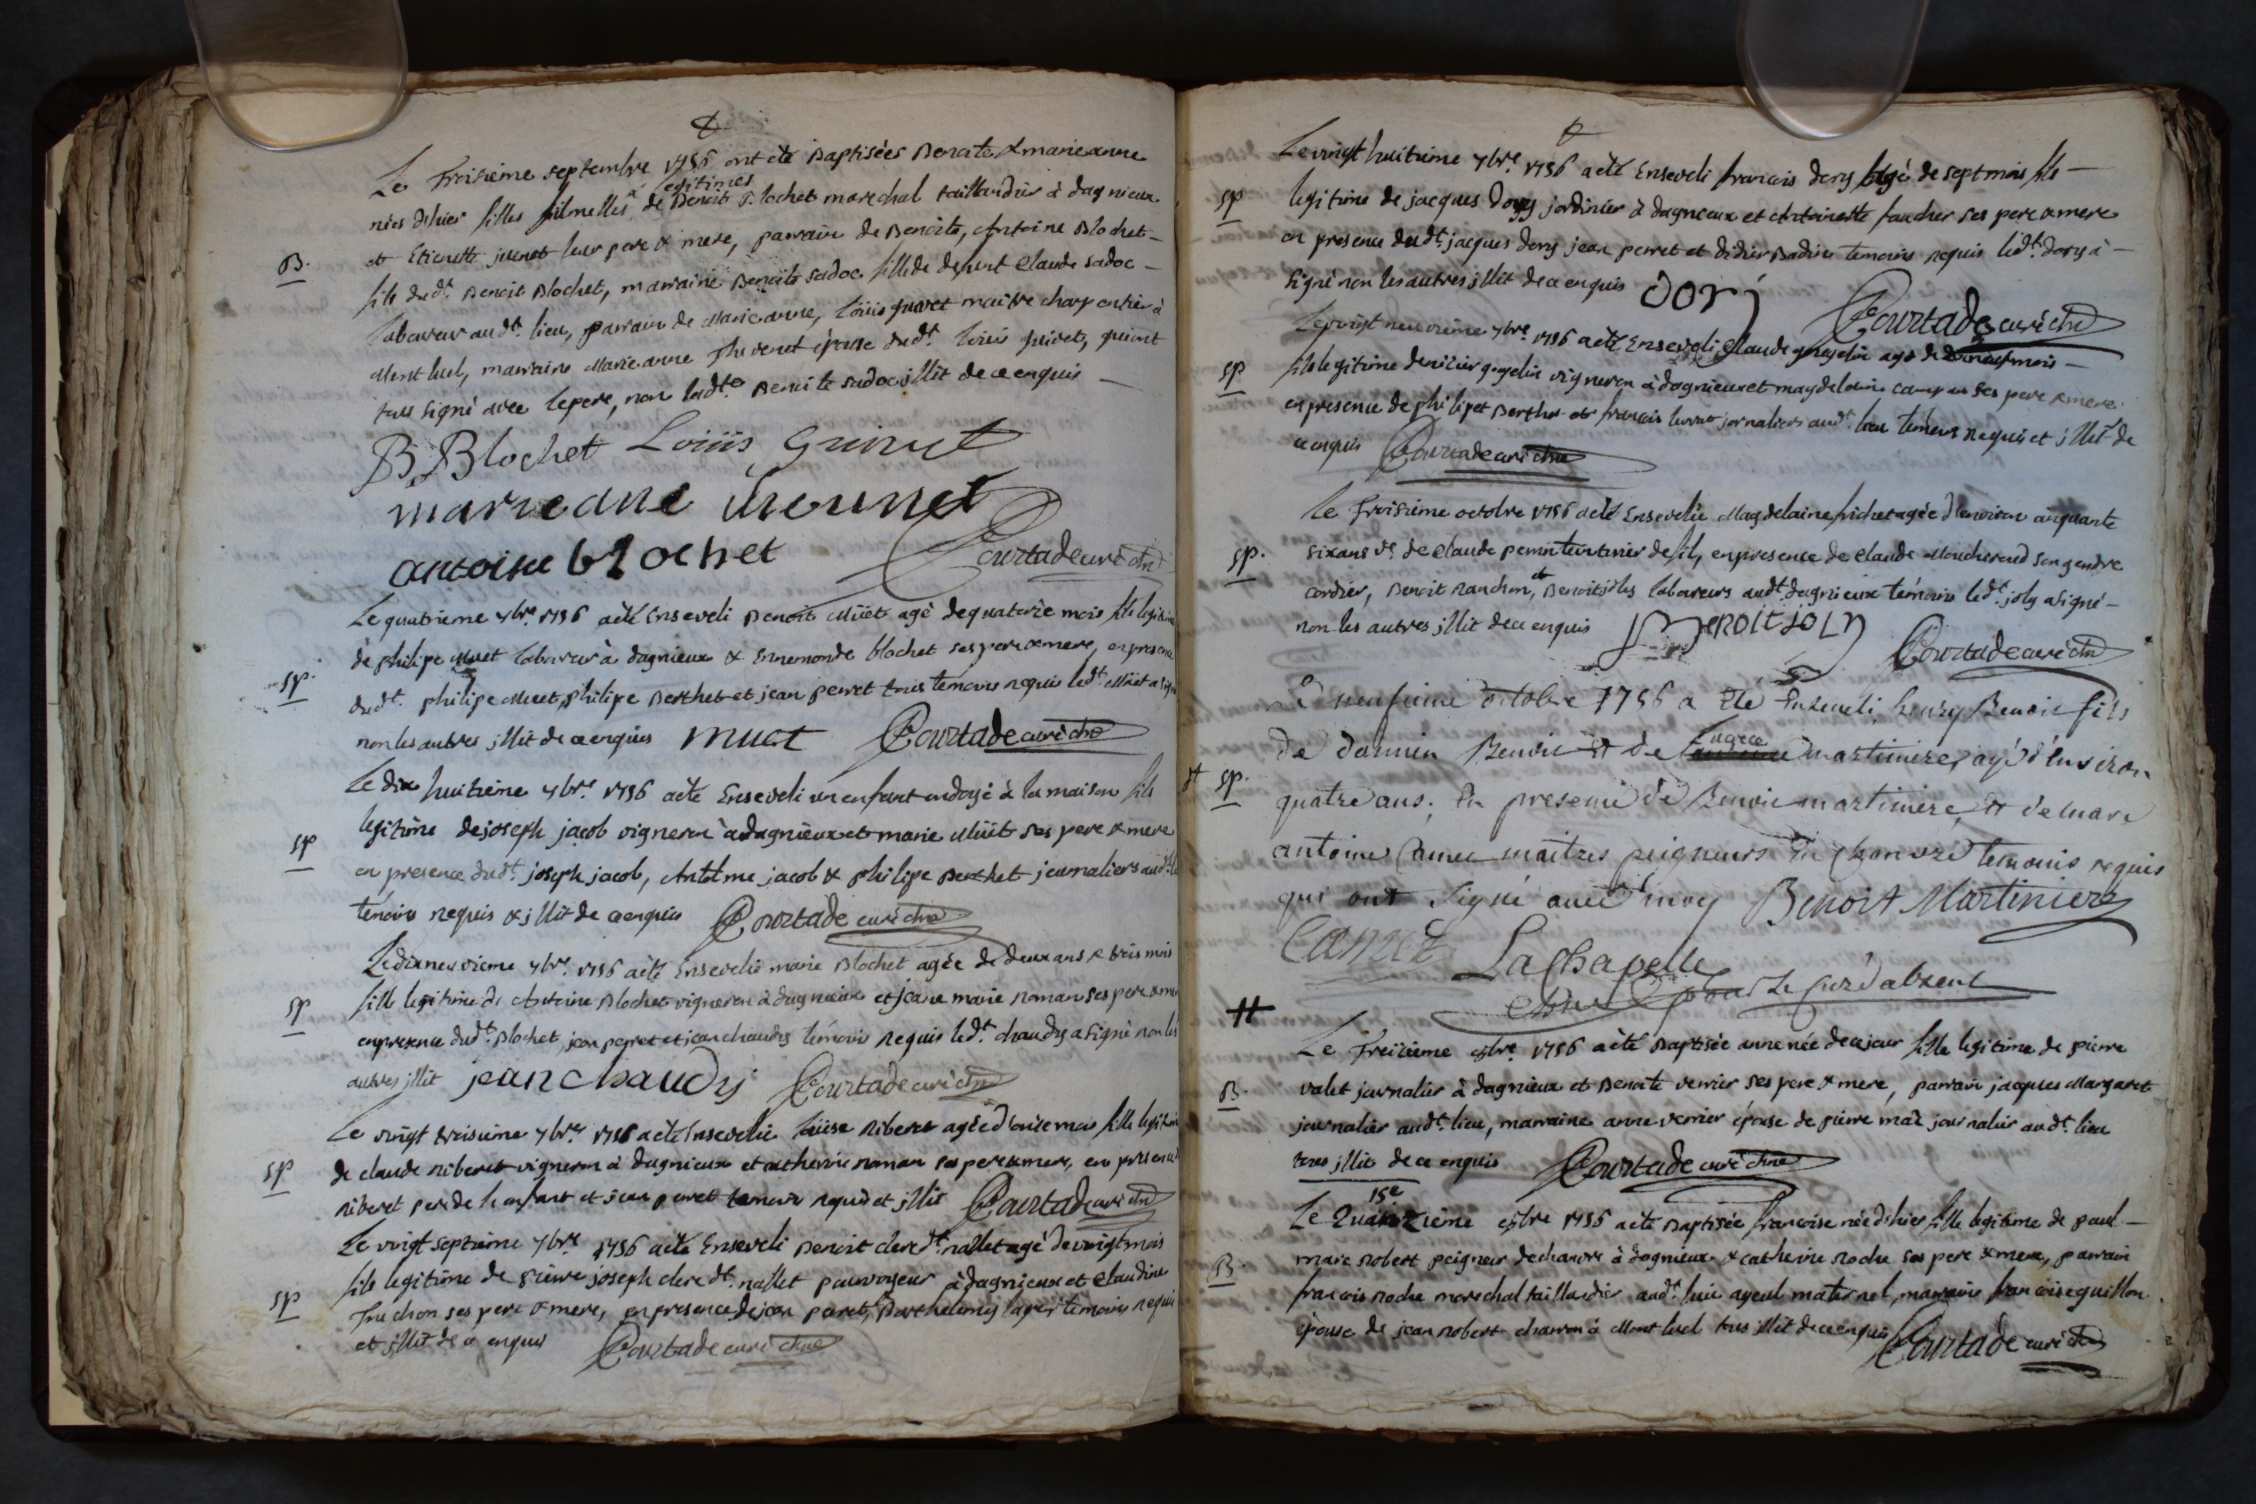 Le Troisième septembre 1756 ont été Baptisées Benoite & marie anne
nées d'hier filles jumelles legitimes de Benoit Blochet marechal taillandier à dagnieux
B. et Etienette juenet leur pere & mere, parrain de Benoite, Antoine Blochet
fils dudt. Benoit Blochet, marraine Benoite sadoc fille de defunt Claude sadoc
laboureur audt. lieu, parrain de Marie anne, Loüis guivet maitre charpentier à
Mont luel, marraine Marie anne Thevenet épouse dudt. Loüis guivet, qui ont
tous signé avec le pere, non ladte. Benoite sadoc illit. de ce enquis
B. Blochet Loüis Guivet
marie ane thevenet
antoine blochet Courtade curé
Le quatrieme 7bre. 1756 a été Enseveli Benoit Müet agé de quatorze mois fils legitime
sp. de philipe Muet laboureur à dagnieux & Ennemonde blochet ses pere & mere, en presence
dudt. philipe Muet, philipe Berthet et jean perret tous temoins requis ledt. Müet a signé
non les autres illit. de ce enquis muet Courtade curé
Le dix huitième 7bre. 1756 a été Enseveli un enfant ondoyé à la maison fils
sp legitime de joseph jacob vigneron à dagnieux et marie Müet ses pere & mere
en presence dudt. joseph jacob, Antelme jacob & philipe Berthet journaliers audt.
témoins requis & illit. de ce enquis Courtade curé
Le dix neuvieme 7bre. 1756 a été Ensevelie marie Blochet agée de deux ans & trois mois
sp fille legitime de Antoine Blochet vigneron à dagnieux et jeane marie roman ses pere & mere
en presence dudt. Blochet, jean perret et jean chaudy témoins requis ledt. chaudy a signé non les
autres illit. jean chaudy Courtade curé
Le vingt troisieme 7bre. 1756 a été Ensevelie Loüise riberet agée d'onze mois fille legitime
sp de claude riberet vigneron à dagnieux et catherine roman ses pere & mere, en presence
riberet pere de l'enfant et jean perret temoins requis et illit. Courtade curé
Le vingt septieme 7bre. 1756 a été Enseveli Benoit clerc dt. nallet agé de vingt mois
sp fils legitime de pierre joseph clerc dt. nallet pourvoyeur à dagnieux et Claudine
Truchon ses pere & mere, en presence de jean perret, Barthelemy temoins requis
et illit. de ce enquis Courtade curé
Le vingt huitieme 7bre. 1756 a été Enseveli francois dory agé de sept mois fils
sp legitime de jacques dory jardinier à dagnieux et Antoinette faucher ses pere & mere
en presence dudt. jacques dory jean perret et didier Badin temoins requis ledt. dory a
signé non les autres illit. de ce enquis dory Courtade curé
Le vingt neuvieme 7bre. 1756 a été Enseveli Claude goyselin agé de mois
sp fils legitime de goyselin vigneron à dagnieux et magdelaine ses pere & mere
en presence de philipe Berthet et francois journaliers audt. lieu temoins requis et illit. de
ce enquis Courtade curé
Le Troisieme octobre 1756 a été Ensevelie Magdelaine agée d'environ cinquante
sp. six ans de Claude teinturier de fil, en presence de Claude Moucheroud son gendre
cordier, Benoit ranchon, et Benoit joly laboureurs audt. dagnieux témoins ledt. joly a signé
non les autres illit. de ce enquis Benoit Joly Courtade curé
Le neufieme octobre 1756 a été Enseveli henry Benoit fils
de damien Benoit & de martiniere, agé d'environ
sp. quatre ans, En presence de Benoit martiniere & de marc
antoine Canet maitres peigneurs de chanvre temoins requis
qui ont signé avec moy Benoit Martiniere
Canet La Chapelle
pour Le Curé absent
Le Treizieme 8bre. 1756 a été Baptisée anne née de ce jour fille legitime de pierre
B. valet journalier à dagnieux et Benoite verrier ses pere & mere, parrain jacques Margaret
journalier audt. lieu, marraine anne verrier épouse de pierre journalier audt. lieu
tous illit. de ce enquis Courtade curé
15e
Le Quatorzième 8bre 1756 a été Baptisée francoise née d'hier fille legitime de paul
B. marc robert peigneur de chanvre à dagnieux & catherine roche ses pere & mere, parrain
francois roche marechal taillandier audt. lieu ayeul maternel, marraine francoise guillon
épouse de jean robert charron à Mont luel tous illit. de ce enquis Courtade curé